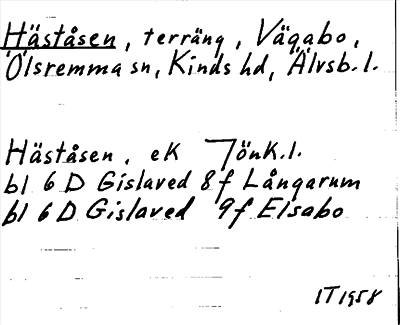 Häståsen, terräng, Vägabo,
Ölsremma sn, Kinds hd, Älvsb. l.
Häståsen. ek Jönk. l.
bl 6 D Gislaved 8 f Långarum
bl 6 D Gislaved 9 f Elsabo
IT 1958